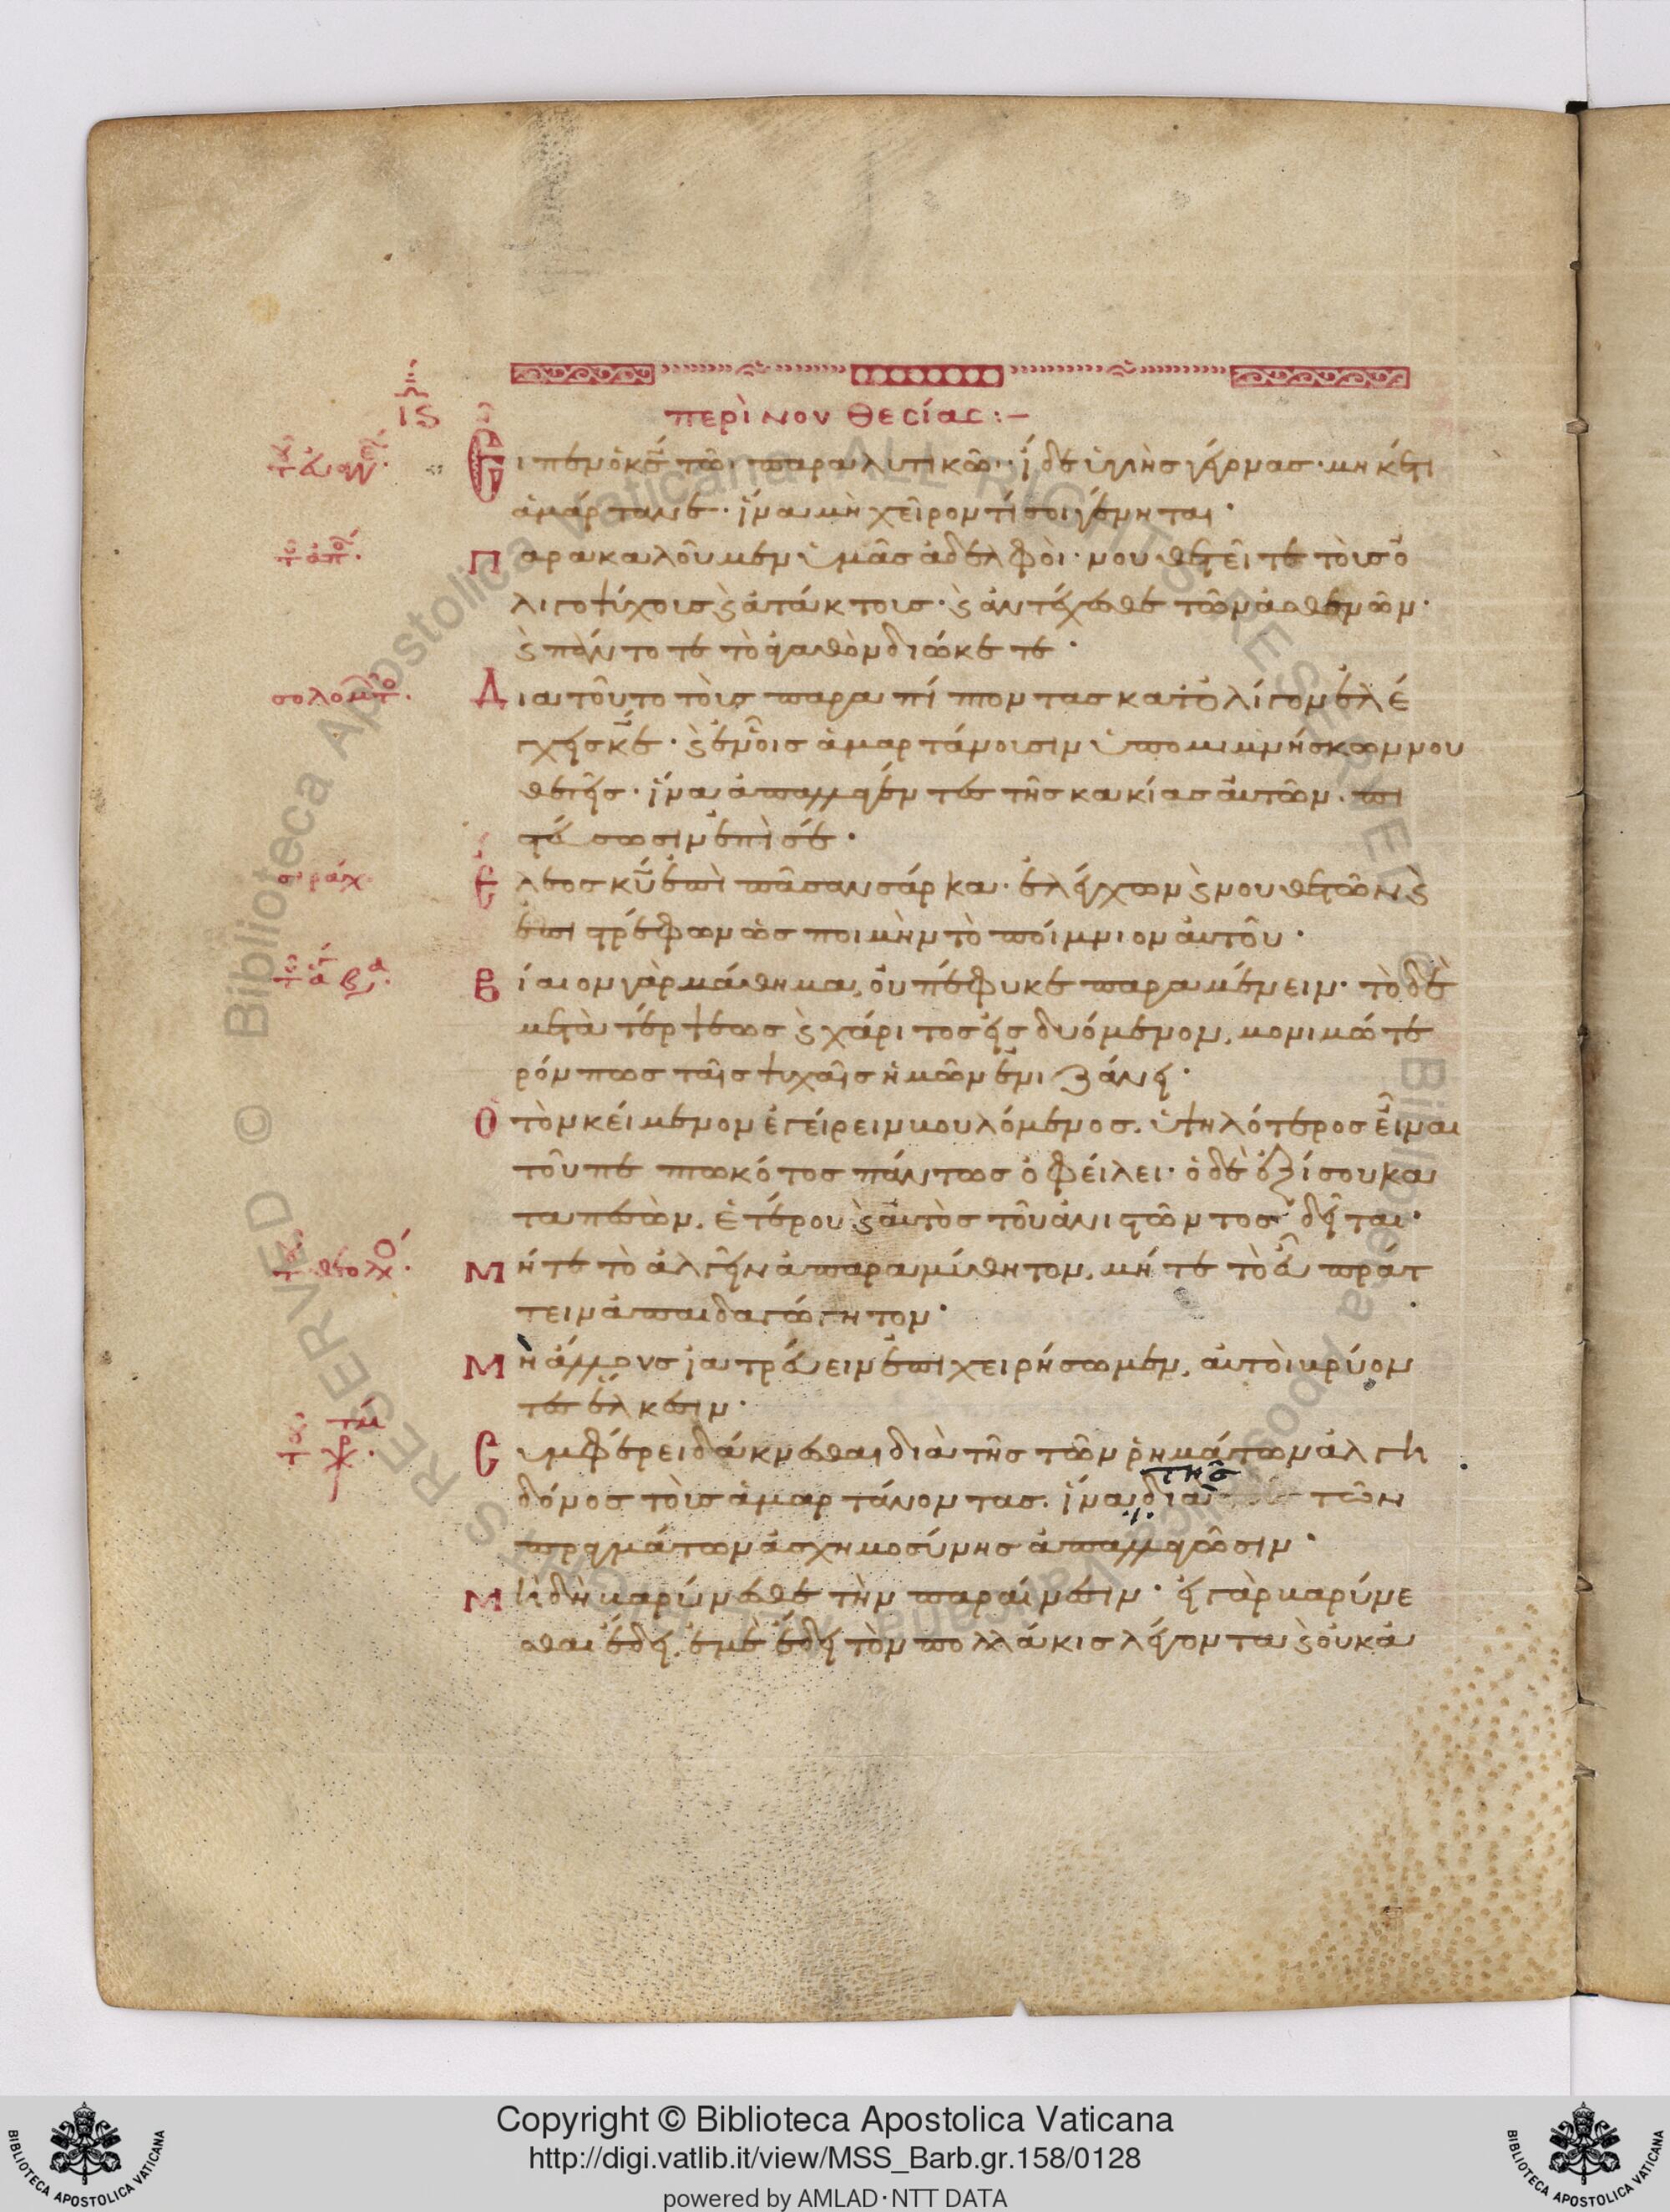 ις
περὶ νουθεσίας :-
Εἶπεν ὁ κς̄ τῶι παραλυτικῶ· ἴδε ὑγιὴς γέγονας· μηκέτι
ἁμάρτανε· ἵνα μὴ χεῖρον τί σοι γένηται·
Παρακαλοῦμεν ὑμᾶς ἀδελφοὶ· νουθετεῖτε τοὺς ὀ
λιγοψύχους ϗ ἀτάκτους· ϗ ἀντέχεσθε τῶν ἀσθενῶν·
ϗ πάντοτε τὸ ἀγαθὸν διώκετε·
σολομῶντο.
Διατοῦτο τοὺς παραπίπτοντας κατολίγον ἐλέ
γχεις κε̄· ϗ ἐν οἷς ἁμαρτάνουσιν ὑπομιμνήσκων νου
θετεῖς· ἵνα ἀπαλλαγέντες τῆς κακίας αὐτῶν. πι
στεύσωσιν ἐπὶ σέ·
σιράχ
Ἔλεος κῡ ἐπὶ πᾶσαν σάρκα· ἐλέγχων ϗ νουθετῶν ϗ
ἐπιστρέφων ὡς ποιμὴν τὸ ποίμνιον αὐτοῦ·
Βίαιον γὰρ μάθημα, οὐ πέφυκε παραμένειν· τὸ δὲ
μετὰ τέρψεως ϗ χάριτος εἰσδυόμενον, μονιμώτε
ρόν πως ταῖς ψυχαῖς ἡμῶν ἐνιζάνει·
Ὁ τὸν κείμενον ἐγείρειν βουλόμενος. ὑψηλότερος εἶναι
τοῦ πεπτωκότος πάντως ὀφείλει· ὁ δὲ ἐξίσου κα
ταπεσὼν. ἑτέρου ϗ αὐτὸς τοῦ ἀνιστῶντος δεῖται·
Μήτε τὸ ἀλγεῖν ἀπαραμύθητον, μήτε τὸ εὖ πράτ
τειν ἀπαιδαγώγητον·
Μὴ ἄλλους ἰατρεύειν ἐπιχειρήσωμεν, αὐτοὶ βρύον
τες ἕλκεσιν·
Συμφέρει δάκνεσθαι διὰ τῆς τῶν ῥημάτων ἀλγη
δόνος τοὺς ἁμαρτάνοντας. ἵνα διὰ τῆς τῶν
πραγμάτων ἀσχημοσύνης ἀπαλλαγῶσιν·
Μὴ δὴ βαρύνεσθε τὴν παραίνεσιν· εἰ γὰρ βαρύνε
σθαι ἔδει. ἐμὲ ἔδει τὸν πολλάκις λέγοντα ϗ οὐκ ἀ
Copyright © Biblioteca Apostolica Vaticana
http://digi.vatlib.it/view/MSS_Barb.gr.158/0128
powered by AMLAD·NTT DATA
BIBLIOTECA APOSTOLICA VATICANA
BIBLIOTECA APOSTOLICA VATICANA